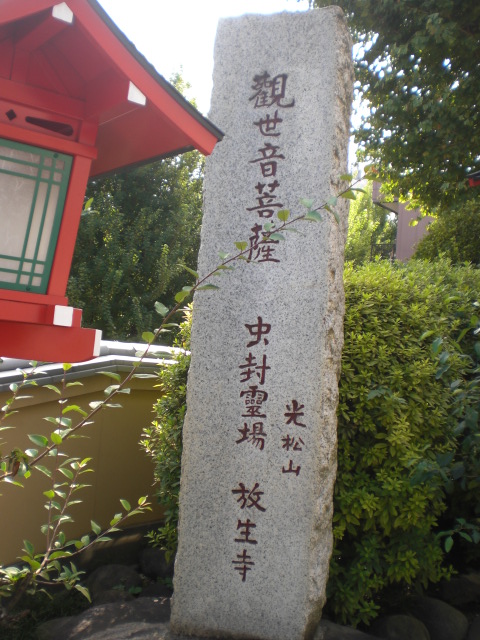 觀世音菩薩 虫封靈場 放生寺
光松山